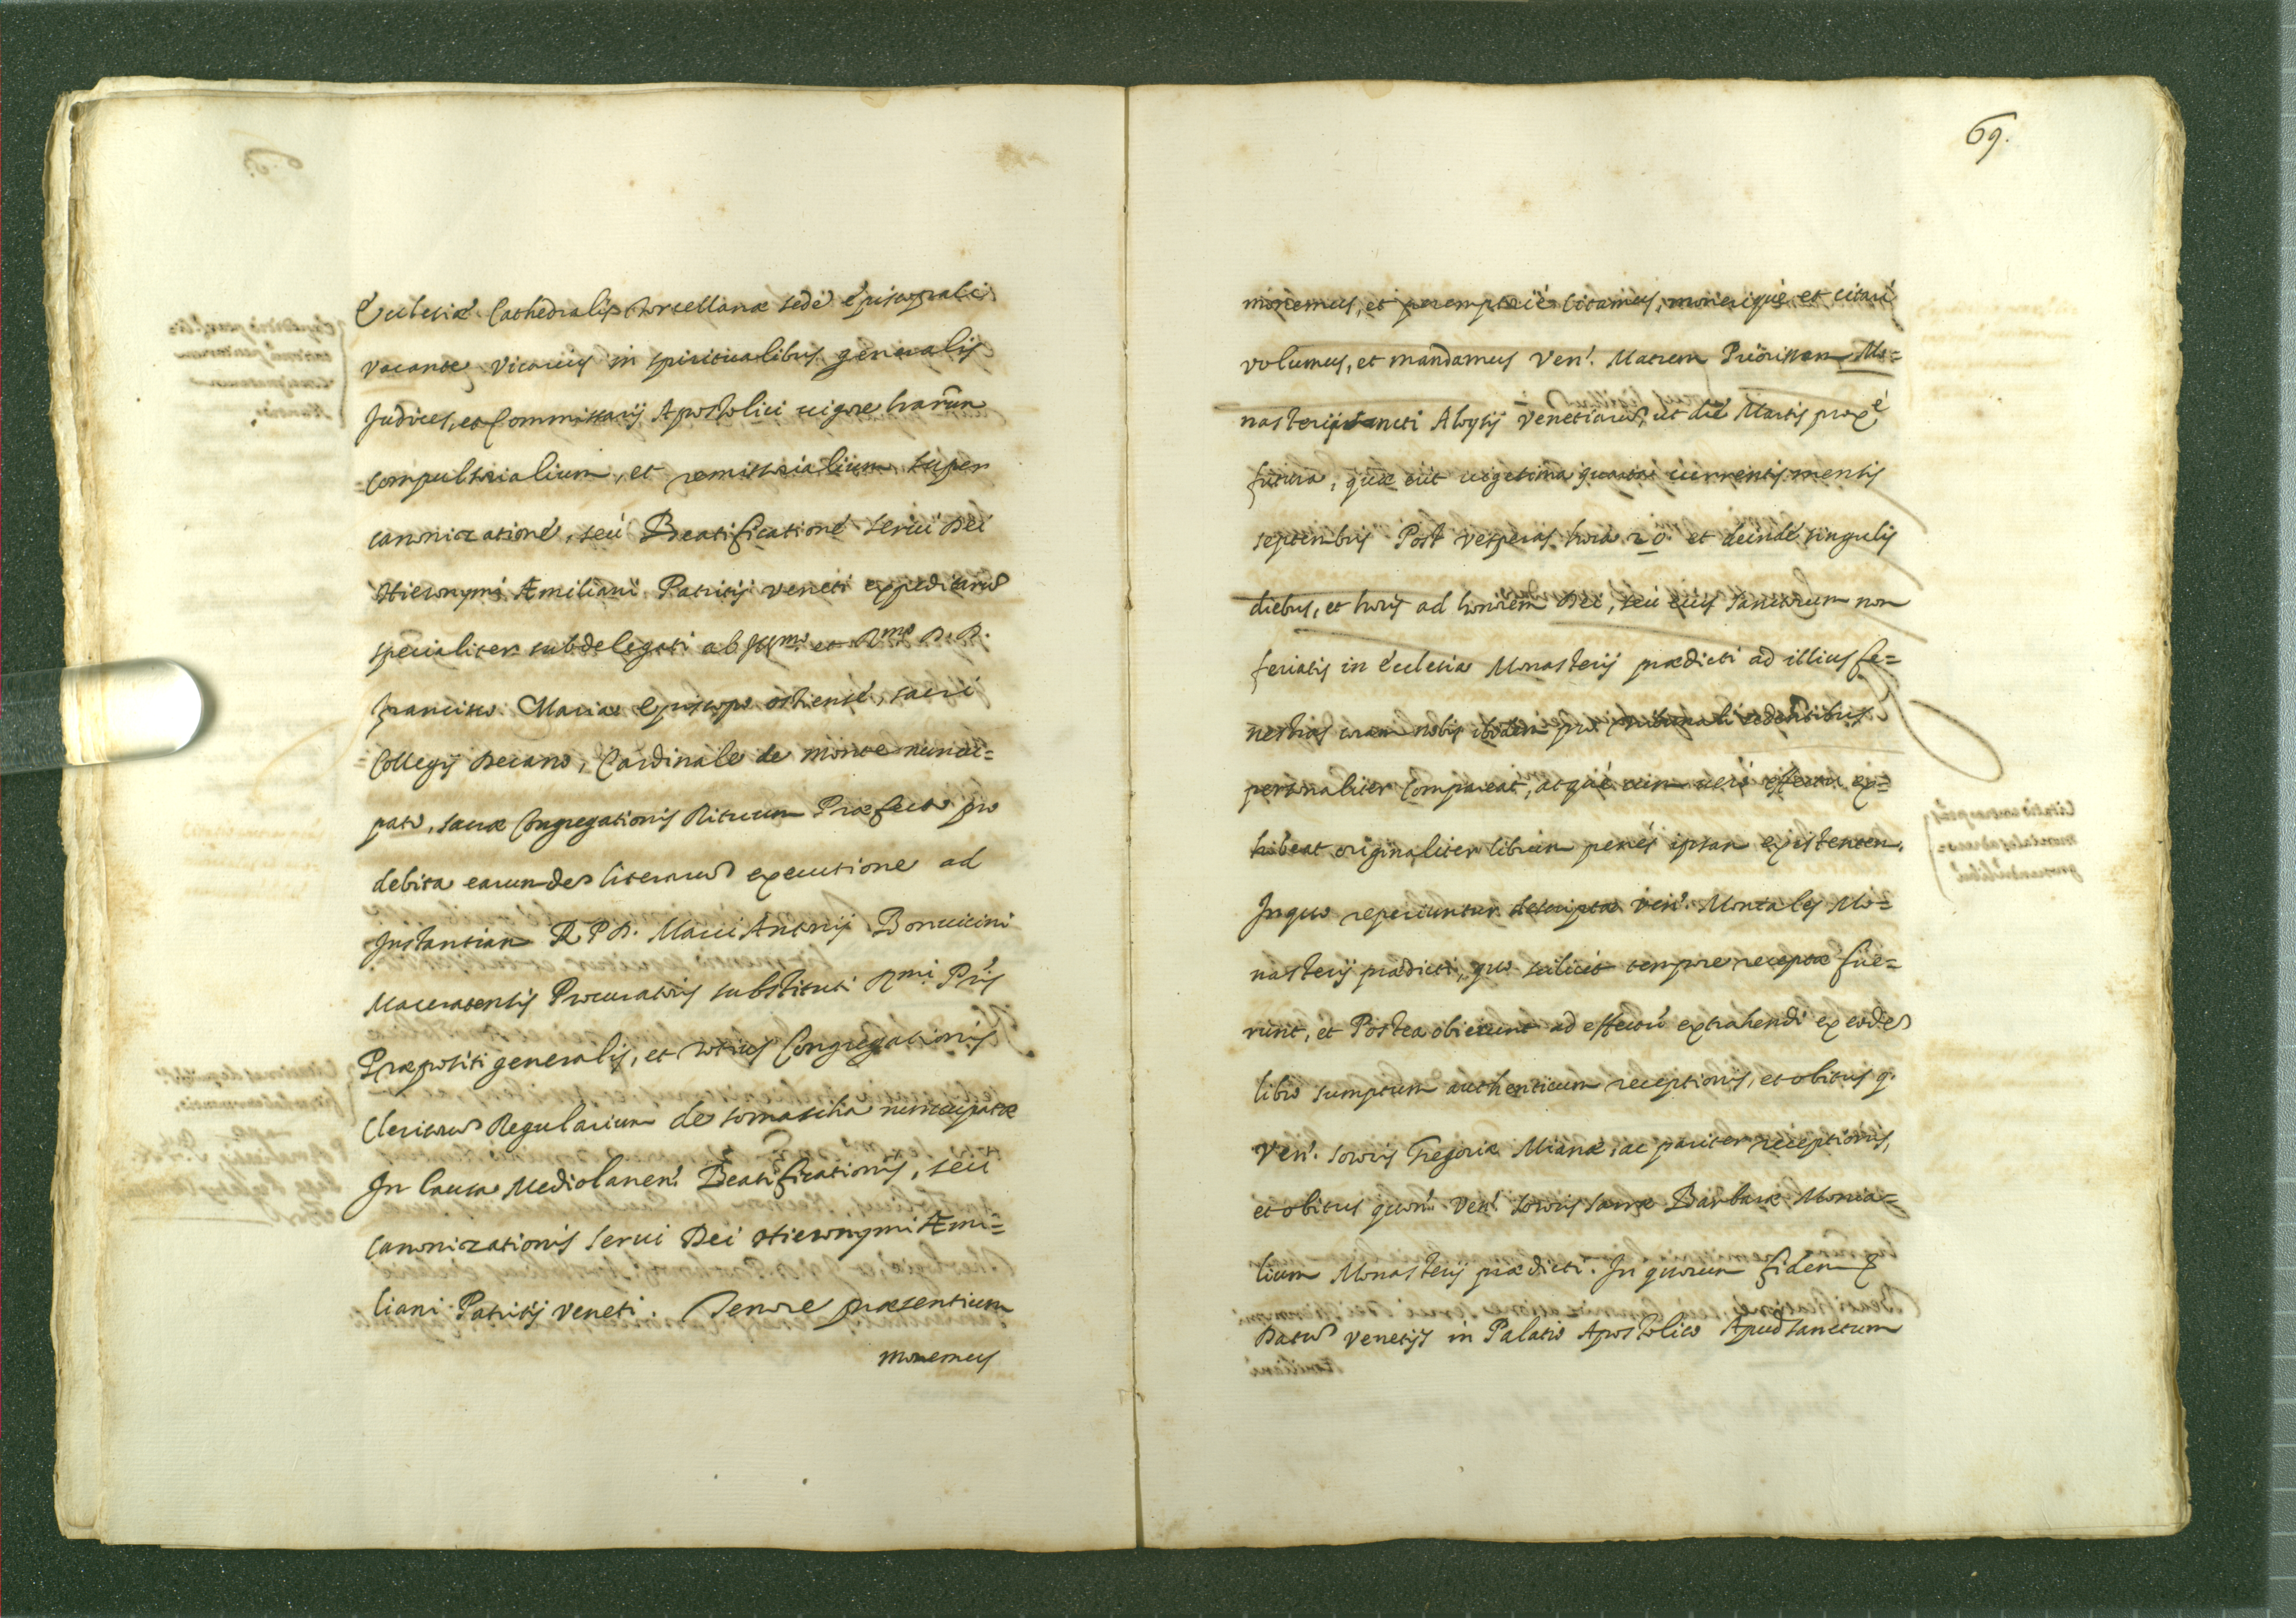 Ecclesiæ Cathedralis Torcellanæ sede episcopali
vacante Vicarius in spiritualibus generalis
Judices, et Commissarij Apostolici uigore harum
compulsorialium, et remissorialium super
canonizatione, seù Beatificatione Serui Dei
Hieronymi Æmiliani Patritij veneti expeditarũ
specialiter subdelegati ab Illmo. et Rmo D. D.
Francisco Maria Episcopo ostiense, sacri
Collegij Decano, Cardinale de Monte nuncu=
pato, sacræ Congregationis Rituum Præfecto pro
debita earunde literarũ executione ad
Instantiam R P D. Marci Antonij Bonuicini
Maceratensis Procuratoris substituti Rmi. Pris
Præpositi generalis, et totius Congregationis
Clericorũ Regularium de somascha nuncupatæ
In Causa Mediolanen. Beatificationis, seu
Canonizationis Serui Dei Hieronymi Æmi=
liani Patritij veneti. Tenore præsentium
monemus
69.
monemus, et peremptoriè citamus, monerique et citari
volumus, et mandamus Ven. Matrem Priorissam Mo=
nasterij sancti Aloysij Venetiarũ, ut die Martis proxe
futura, quæ erit uigesima quarta currentis mensis
septembris Post vesperas hora 20. et deinde singulis
diebus, et horis ad honorem Dei, seù eius sanctorum non
feriatis in ecclesia Monasterij prædicti ad illius fe=
nestras coram nobis ibidem pro tribunali sedentibus
personaliter compareat, atque cum uero effectu ex=
hibeat originaliter librum penès ipsam existentem,
In quo reperiuntur descriptæ ven. Moniales Mo=
nasterij prædicti, quo scilicet tempore receptæ fue=
runt, et Postea obierunt ad effectũ extrahendi ex eode
libro sumptum authenticum receptionis, et obitus q.
Ven. sororis Gregoriæ Mianæ, ac pariter receptionis,
et obitus quon. Ven. sororis Barbaræ Monia=
lium Monasterij prædicti. In quorum fidem
Datũ venetijs in Palatio Apostolico Apud sanctum